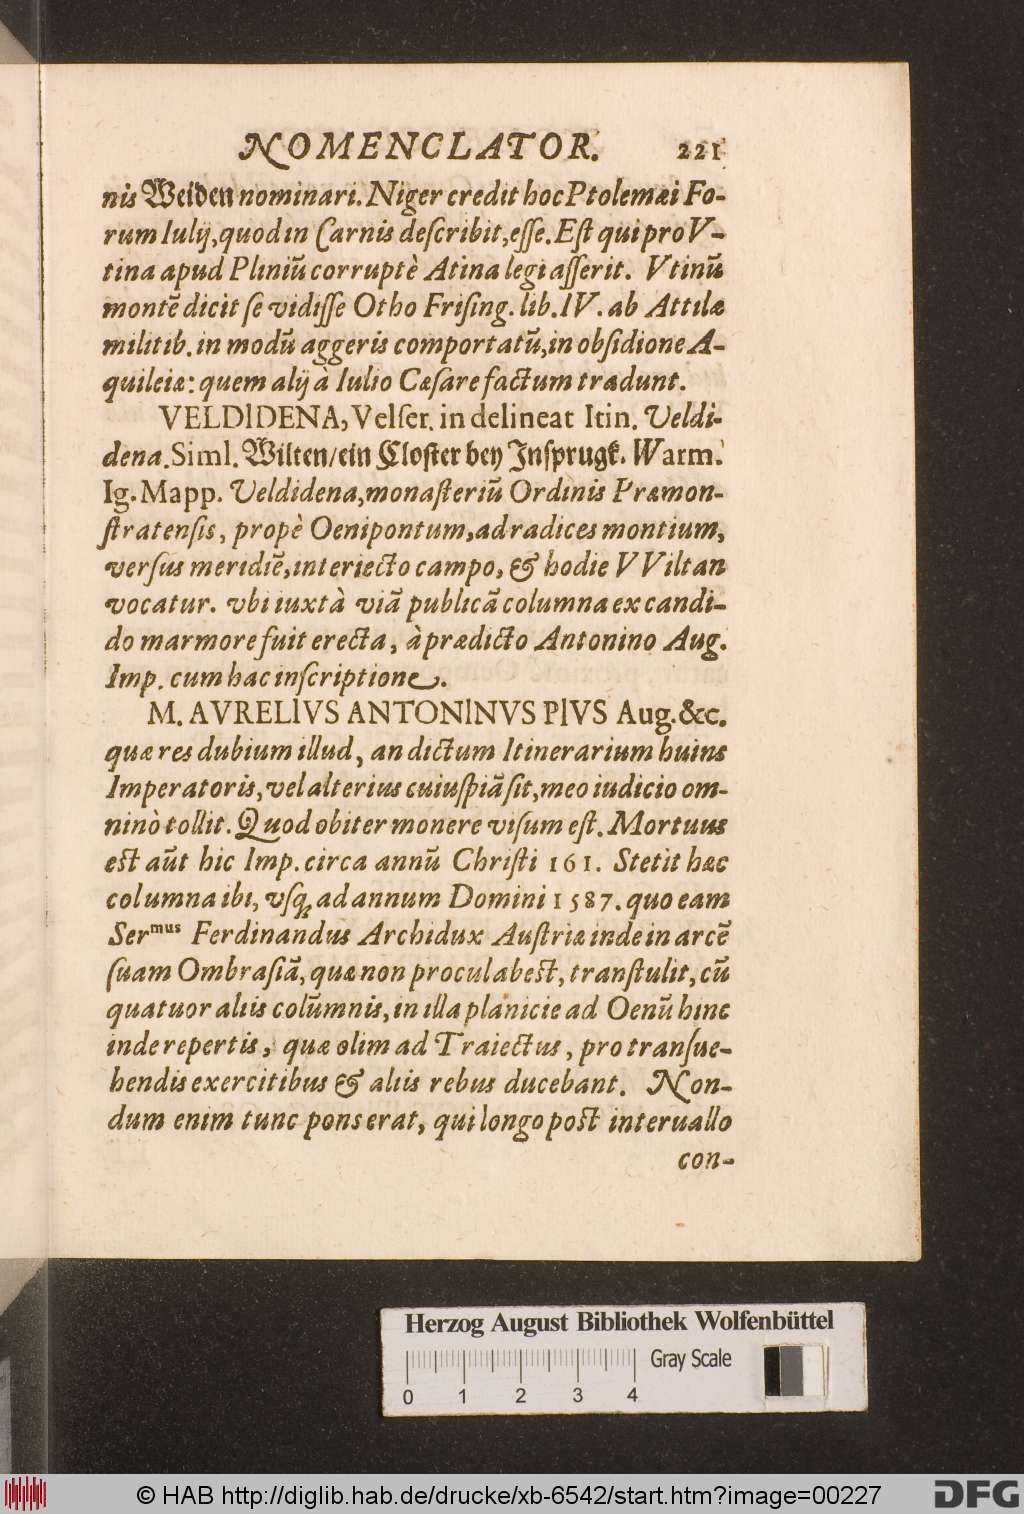 NOMENCLATOR. 221
nis Weiden nominari. Niger credit hoc Ptolemæi Fo-
rum Iulij, quod in Carnis deſcribit, eſſe. Eſt qui pro V-
tina apud Pliniū corruptè Atina legi aſſerit. Vtinū
montē dicit ſe vidiſſe Otho Friſing. lib. IV. ab Attilæ
militib. in modū aggeris comportatū, in obſidione A-
quileiæ: quem alij à Iulio Cæſare factum tradunt.
VELDIDENA, Velſer. in delineat Itin. Veldi-
dena. Siml. Wilten/ ein Cloſter bey Jnſprugk. Warm.
Ig. Mapp. Veldidena, monaſteriū Ordinis Præmon-
ſtratenſis, propè Oenipontum, ad radices montium,
verſus meridiē, interiecto campo, & hodie VViltan
vocatur. vbi iuxtà viā publicā columna ex candi-
do marmore fuit erecta, à prædicto Antonino Aug.
Imp. cum hac inſcriptione.
M. AVRELIVS ANTONINVS PIVS Aug. &c.
quæ res dubium illud, an dictum Itinerarium huius
Imperatoris, vel alterius cuiuſpiā ſit, meo iudicio om-
ninò tollit. Quod obiter monere viſum eſt. Mortuus
eſt aūt hic Imp. circa annū Chriſti 161. Stetit hæc
columna ibi, vſq; ad annum Domini 1587. quo eam
Ser^mus Ferdinandus Archidux Auſtriæ inde in arcē
ſuam Ombraſiā, quæ non procul abeſt, tranſtulit, cū
quatuor aliis colūmnis, in illa planicie ad Oenū hinc
inde repertis, quæ olim ad Traiectus, pro tranſue-
hendis exercitibus & aliis rebus ducebant. Non-
dum enim tunc pons erat, qui longo poſt interuallo
con-
Herzog August Bibliothek Wolfenbüttel
Gray Scale
0 1 2 3 4
© HAB http://diglib.hab.de/drucke/xb-6542/start.htm?image=00227
DFG